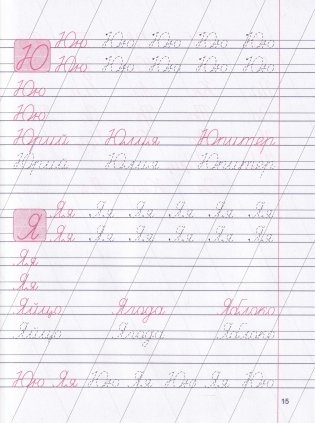 Ю Юю Юю Юю Юю Юю Юю
Юю Юю Юю Юю Юю Юю
Юю
Юю
Юрий Юлия Юпитер
Юрий Юлия Юпитер
Я Яя Яя Яя Яя Яя Яя
Яя Яя Яя Яя Яя Яя
Яя
Яя
Яйцо Ягода Яблоко
Яйцо Ягода Яблоко
Юю Яя Юю Яя Юю Яя Юю
15